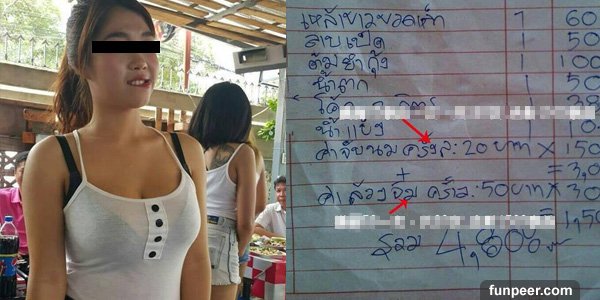 เหล้าขาวยอดเก๋า 1 60
ลาบเป็ด 1 50
ต้มยำกุ้ง 1 100
น้ำตก 1 50
โค้ก
น้ำแข็ง 1
ค่าจับนม ครั้งละ 20 บาท × 150
+ = 3,0
ค่าล้วง ครั้งละ 50 บาท × 30
= 1,50
รวม 4,808
funpeer.com